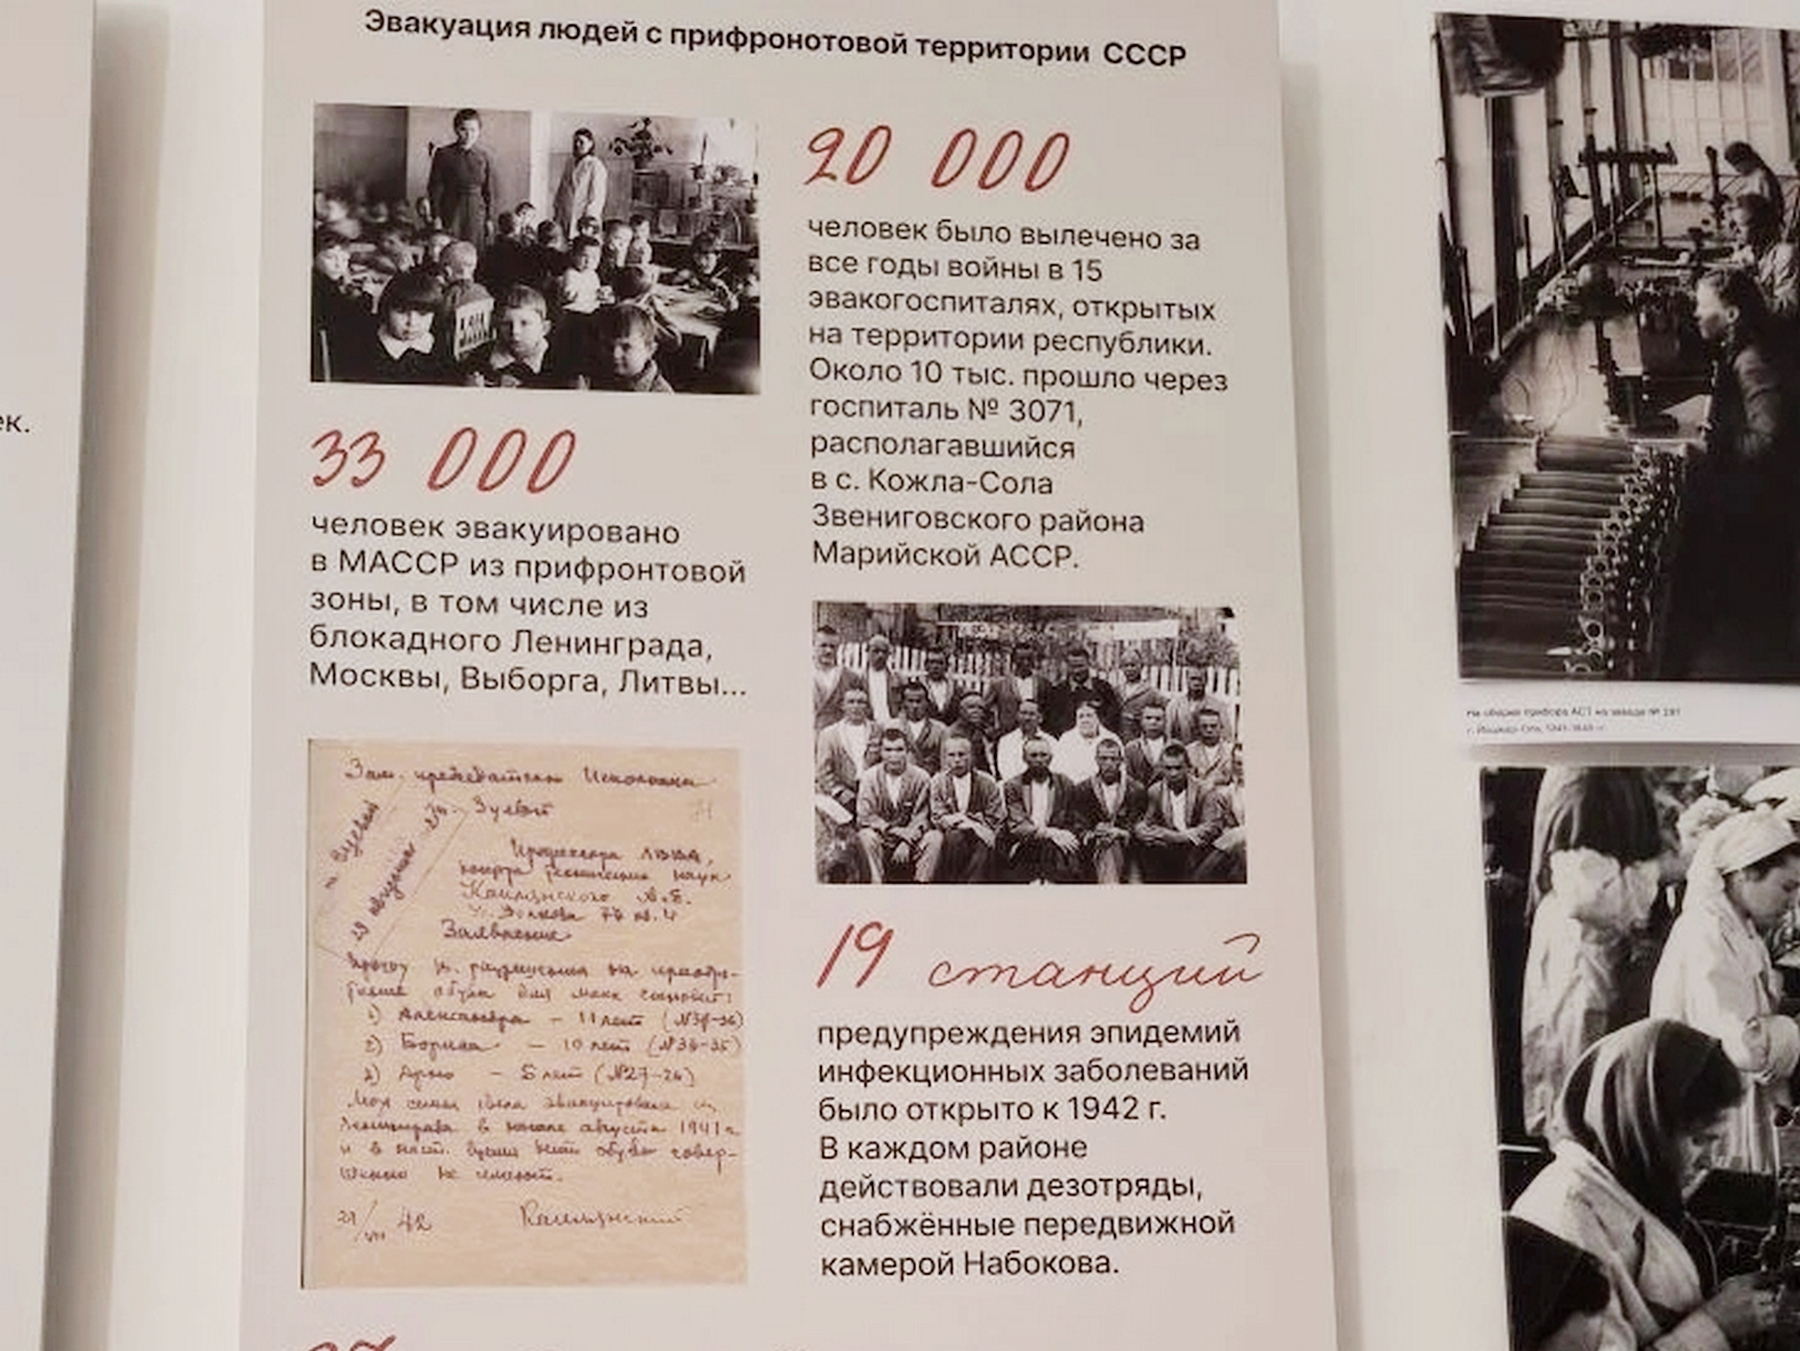 ек.
Эвакуация людей с прифронотовой территории СССР
33 000
человек эвакуировано
в МАССР из прифронтовой
зоны, в том числе из
блокадного Ленинграда,
Москвы, Выборга, Литвы...
Зам. председателя Исполкома
т. Зуевой
Профессора
наук
Заявление
1) Александра - 11 лет
2) Бориса - 10 лет
3) - 5 лет
Моя семья была эвакуирована из
Ленинграда в начале августа 1941 г.
и в наст. время обуви совер-
шенно не имеет.
42
20 000
человек было вылечено за
все годы войны в 15
эвакогоспиталях, открытых
на территории республики.
Около 10 тыс. прошло через
госпиталь № 3071,
располагавшийся
в с. Кожла-Сола
Звениговского района
Марийской АССР.
19 станций
предупреждения эпидемий
инфекционных заболеваний
было открыто к 1942 г.
В каждом районе
действовали дезотряды,
снабжённые передвижной
камерой Набокова.
На сборке прибора АСТ на заводе №
г. Йошкар-Ола,